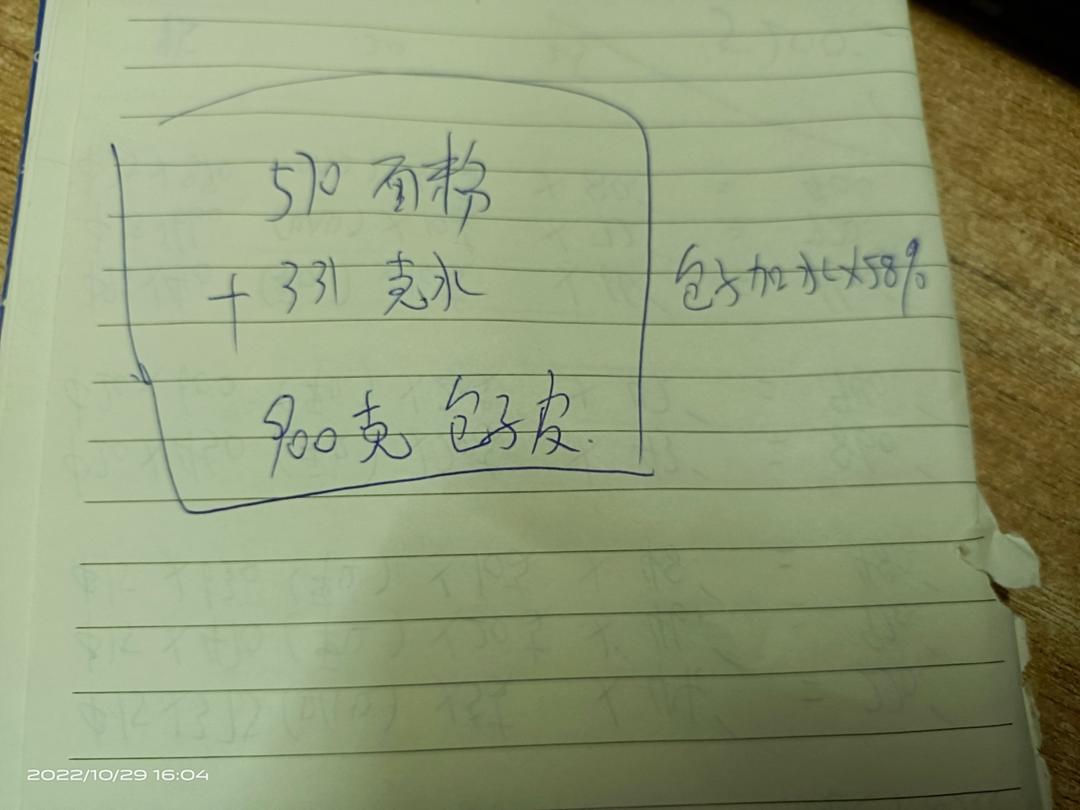 570 面粉
+ 331 克水
包子加水×58%
900克 包子皮.
2022/10/29 16:04